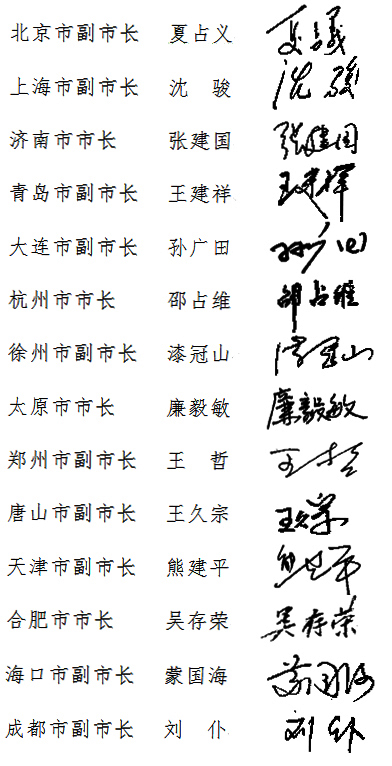 北京市副市长 夏占义 夏占义
上海市副市长 沈 骏 沈骏
济南市市长 张建国 张建国
青岛市副市长 王建祥 王建祥
大连市副市长 孙广田 孙广田
杭州市市长 邵占维 邵占维
徐州市副市长 漆冠山 漆冠山
太原市市长 廉毅敏 廉毅敏
郑州市副市长 王 哲 王哲
唐山市副市长 王久宗 王久宗
天津市副市长 熊建平 熊建平
合肥市市长 吴存荣 吴存荣
海口市副市长 蒙国海 蒙国海
成都市副市长 刘 仆 刘仆